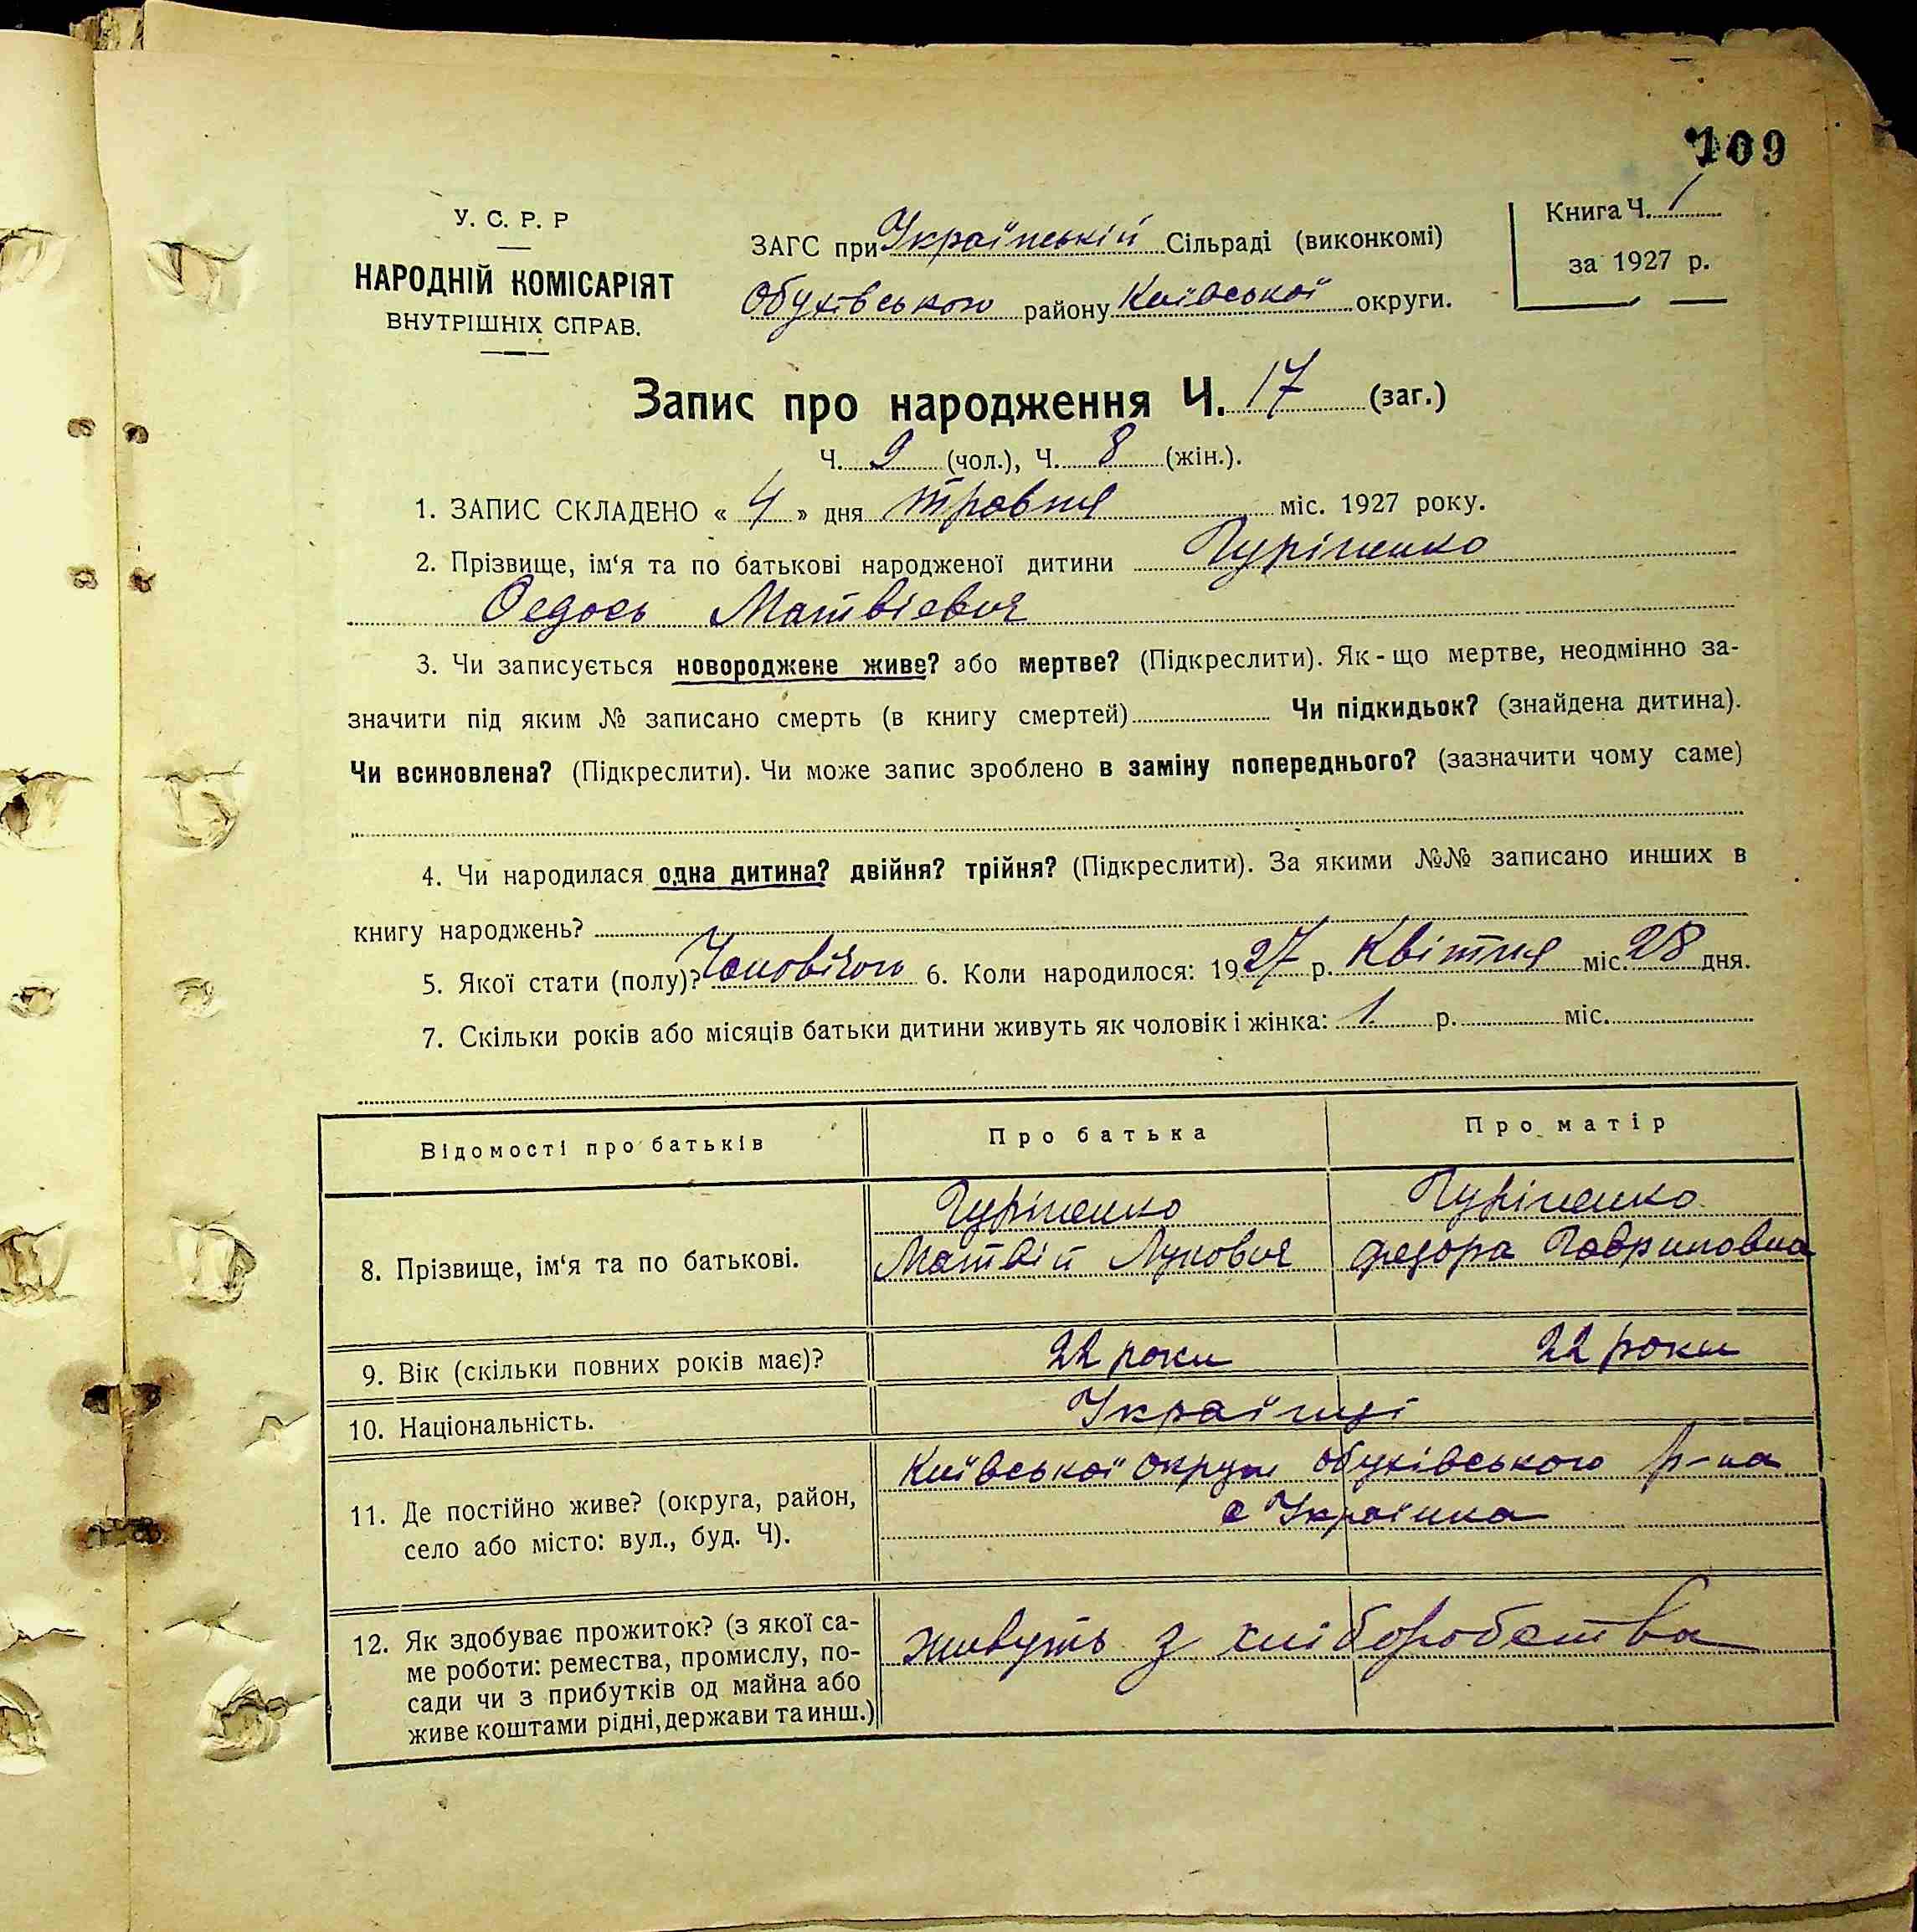 109
У. С. Р. Р
НАРОДНІЙ КОМІСАРІЯТ
ВНУТРІШНІХ СПРАВ.
ЗАГС при Українській Сільраді (виконкомі)
Обухівського району Київської округи.
Книга Ч. 1
за 1927 р.
Запис про народження Ч. 17 (заг.)
Ч. 9 (чол.), Ч. 8 (жін.).
1. ЗАПИС СКЛАДЕНО « 4 » дня травня міс. 1927 року.
2. Прізвище, ім‘я та по батькові народженої дитини Гуріненко
Федось Матвієвич
3. Чи записується новороджене живе? або мертве? (Підкреслити). Як-що мертве, неодмінно за-
значити під яким № записано смерть (в книгу смертей) Чи підкидьок? (знайдена дитина).
Чи всиновлена? (Підкреслити). Чи може запис зроблено в заміну попереднього? (зазначити чому саме)
4. Чи народилася одна дитина? двійня? трійня? (Підкреслити). За якими №№ записано инших в
книгу народжень?
5. Якої стати (полу)? Чоловічого 6. Коли народилося: 1927 р. Квітня міс. 28 дня.
7. Скільки років або місяців батьки дитини живуть як чоловік і жінка: 1 р. міс.
Відомості про батьків Про батька Про матір
Гуріненко Гуріненко
8. Прізвище, ім‘я та по батькові. Матвій Лукович Федора Гавриловна
9. Вік (скільки повних років має)? 22 роки 22 роки
10. Національність. Українці
Київської округи Обухівського р-на
11. Де постійно живе? (округа, район,
село або місто: вул., буд. Ч). с Українка
12. Як здобуває прожиток? (з якої са-
ме роботи: ремества, промислу, по-
сади чи з прибутків од майна або
живе коштами рідні, держави та инш.)
живуть з хліборобства